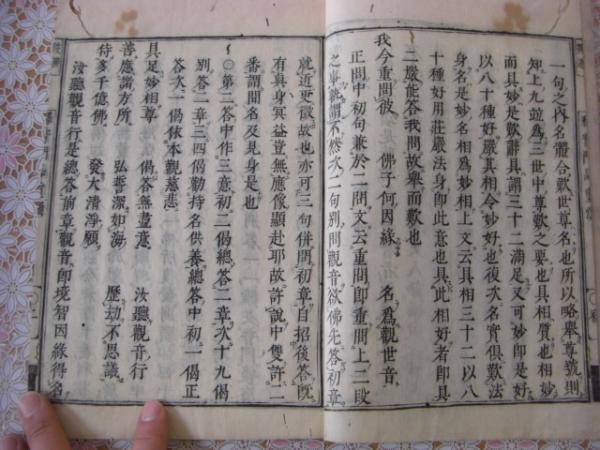 一句之內名體合歎世尊名也所以略舉尊號則
知上九竝爲三世中尊歎之要也具相質也相妙
而具妙是歎辭具謂三十二滿足又可妙卽是好
以八十種好嚴其相令妙好也後次名實俱歎法
身名是妙相名爲妙相上文云具相三十二以八
十種好用莊嚴法身卽此意也具此相好者卽具
二嚴能答我問故舉而歎也
我今重問彼 佛子何因緣 名爲觀世音
正問中初句兼於二問文云重問卽重問上二段
之事就謂不然次二句別問觀音欲佛先答初章
就近更徵故也亦可三句倂問初章自招後答旣
有眞身冥益豈無應像顯赴耶故許說中雙許二
番謂聞名及見身是也
○第二答中作三意初二偈總答二章次十九偈
別答二章三四偈勸持名供養總答中初一偈正
答次一偈依本觀慈悲
具足妙相尊 偈答無盡意 汝聽觀音行
善應諸方所 弘誓深如海 歷劫不思議
侍多千億佛 發大淸淨願
汝聽觀音行是總答前章觀音卽境智因緣得名